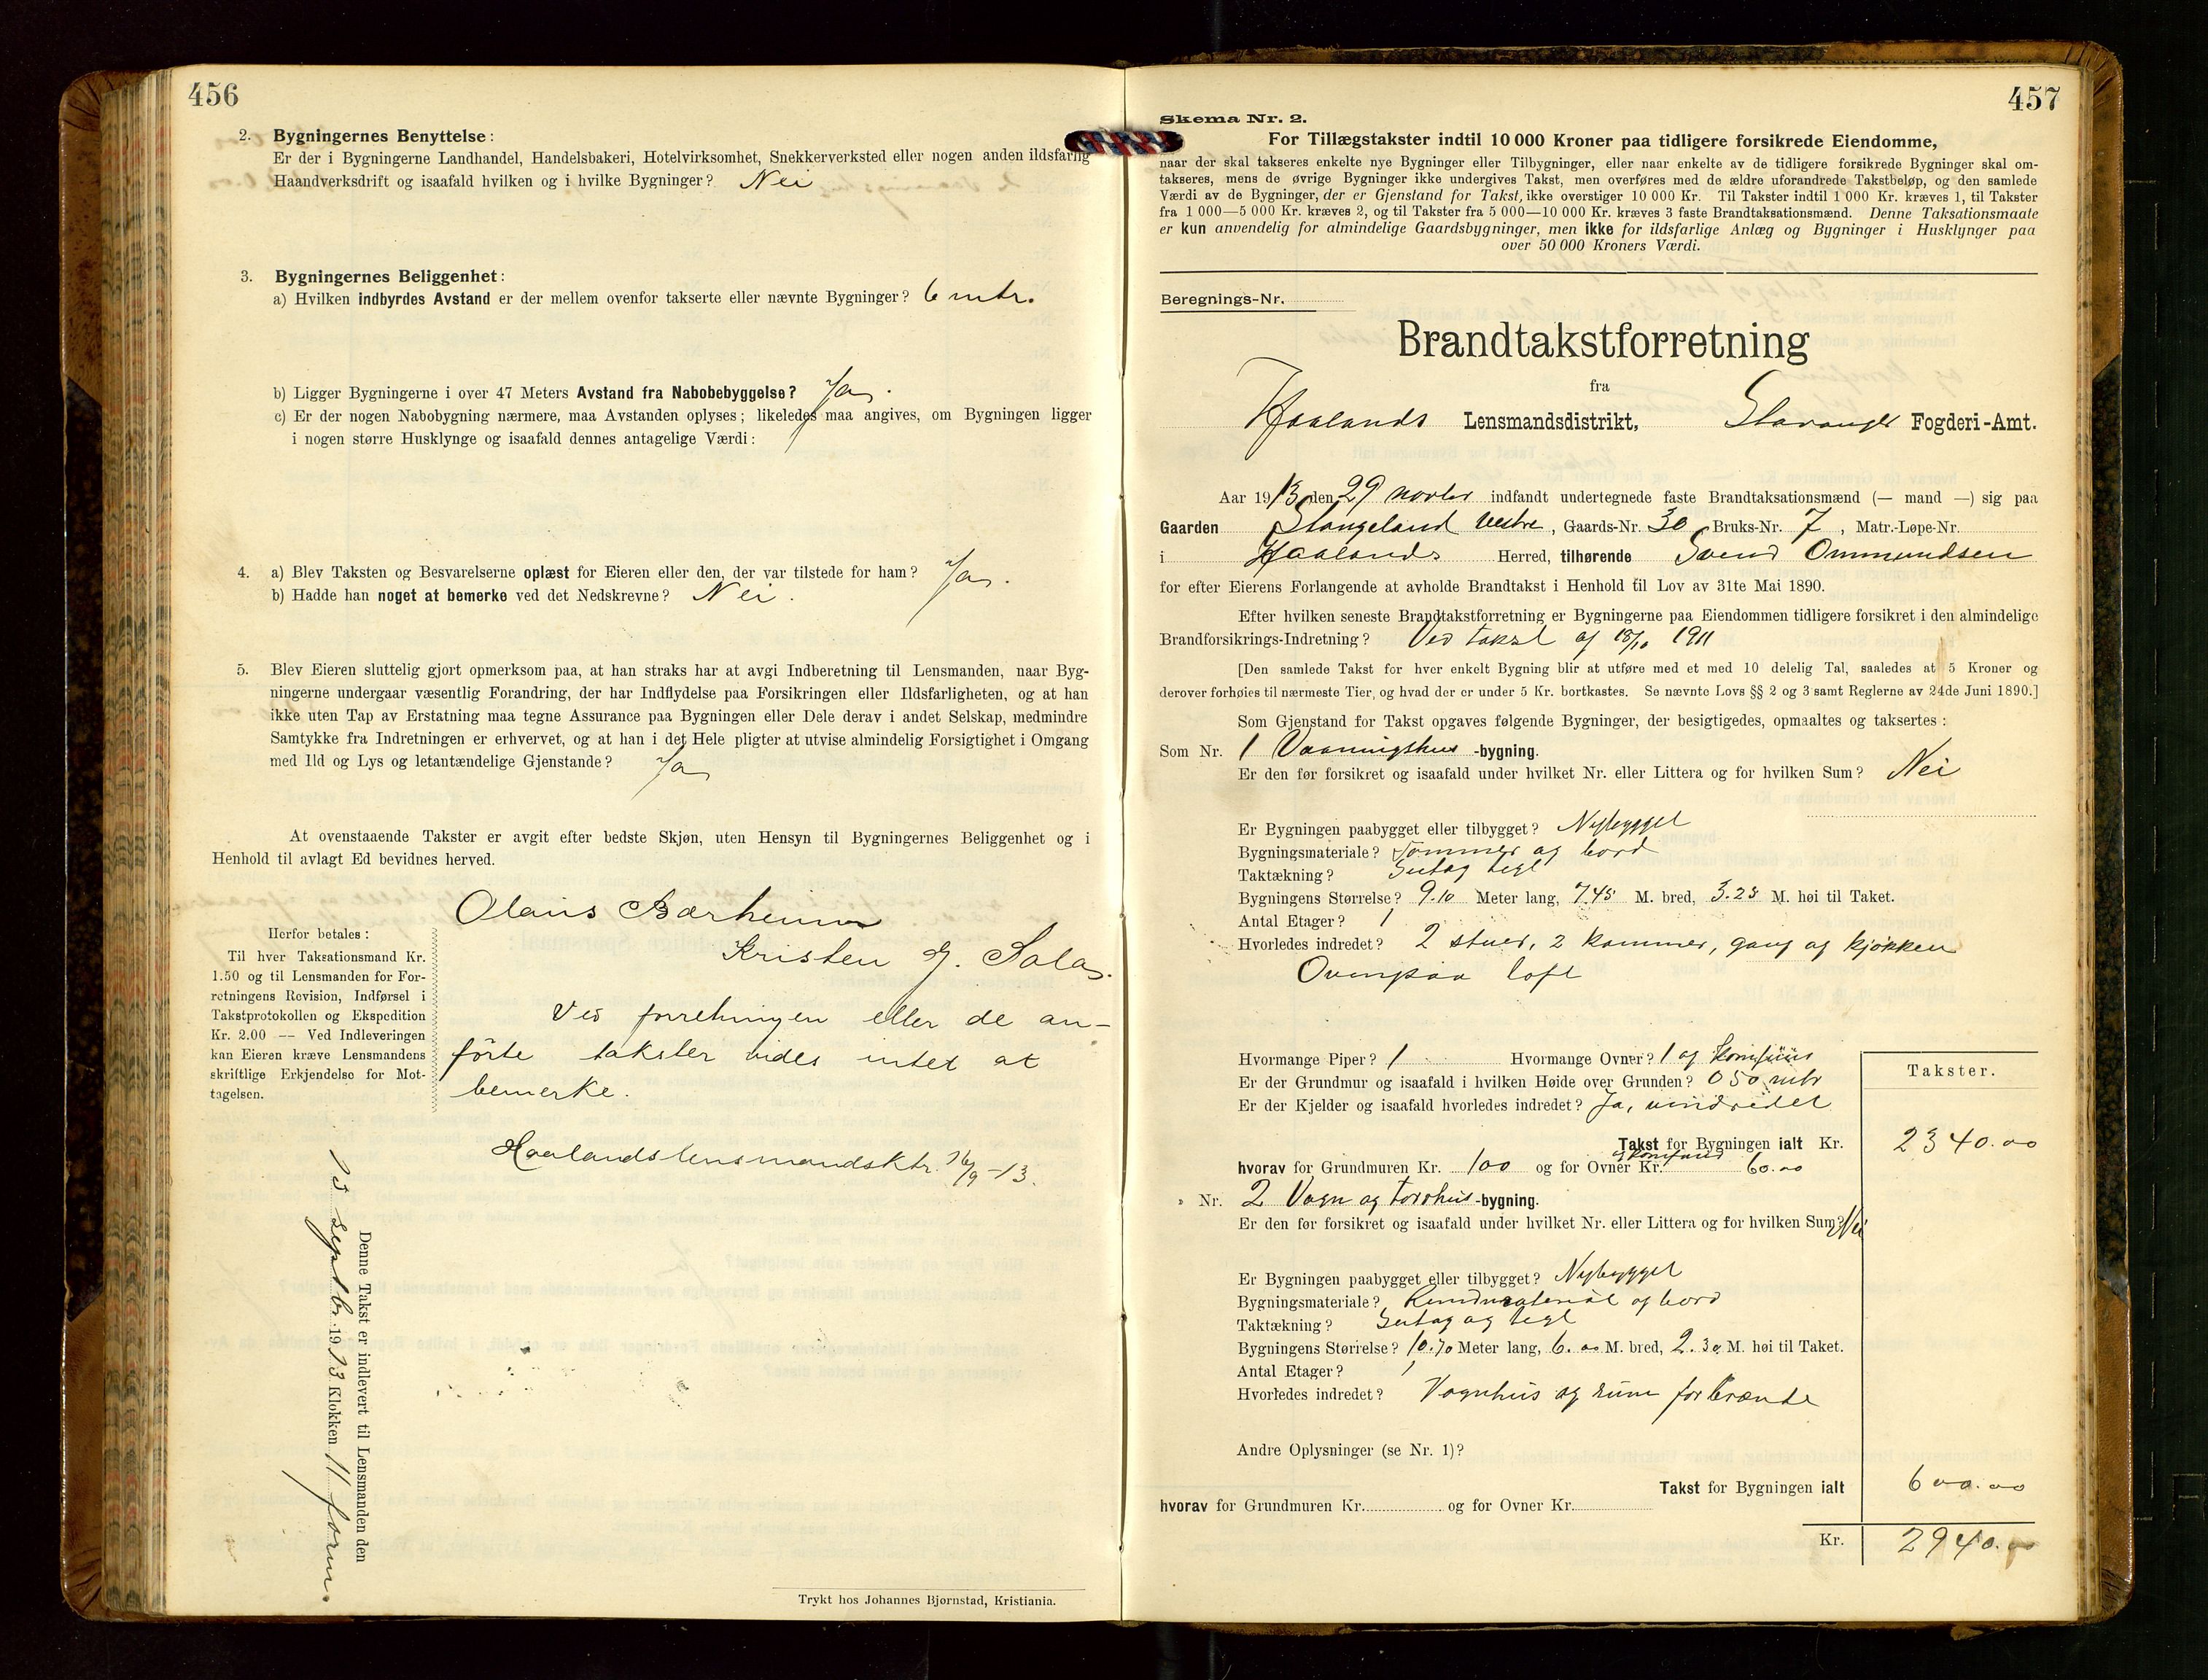 456
2. Bygningernes Benyttelse:
Er der i Bygningerne Landhandel, Handelsbakeri, Hotelvirksomhet, Snekkerverksted eller nogen anden ildsfarlig
Haandverksdrift og isaafald hvilken og i hvilke Bygninger? Nei
3. Bygningernes Beliggenhet:
a) Hvilken indbyrdes Avstand er der mellem ovenfor takserte eller nævnte Bygninger? 6 mtr.
b) Ligger Bygningerne i over 47 Meters Avstand fra Nabobebyggelse? Ja.
c) Er der nogen Nabobygning nærmere, maa Avstanden oplyses; likeledes maa angives, om Bygningen ligger
i nogen større Husklynge og isaafald dennes antagelige Værdi:
4. a) Blev Taksten og Besvarelserne oplæst for Eieren eller den, der var tilstede for ham? Ja.
b) Hadde han noget at bemerke ved det Nedskrevne? Nei.
5. Blev Eieren sluttelig gjort opmerksom paa, at han straks har at avgi Indberetning til Lensmanden, naar Byg-
ningerne undergaar væsentlig Forandring, der har Indflydelse paa Forsikringen eller Ildsfarligheten, og at han
ikke uten Tap av Erstatning maa tegne Assurance paa Bygningen eller Dele derav i andet Selskap, medmindre
Samtykke fra Indretningen er erhvervet, og at han i det Hele pligter at utvise almindelig Forsigtighet i Omgang
med Ild og Lys og letantændelige Gjenstande? Ja
At ovenstaaende Takster er avgit efter bedste Skjøn, uten Hensyn til Bygningernes Beliggenhet og i
Henhold til avlagt Ed bevidnes herved.
Olaus Barheim
Kristen G. Sola.
Herfor betales:
Til hver Taksationsmand Kr.
1.50 og til Lensmanden for For-
retningens Revision, Indførsel i
Takstprotokollen og Ekspedition
Kr. 2.00 — Ved Indleveringen
kan Eieren kræve Lensmandens
skriftlige Erkjendelse for Mot-
tagelsen.
Ved forretningen eller de an-
førte takster vides intet at
bemerke.
Haalands lensmandsktr. 16/9-13.
Denne Takst er indlevert til Lensmanden den
15 septbr. 1913 Klokken 11 form.
Trykt hos Johannes Bjørnstad, Kristiania.
457
Skema Nr. 2.
For Tillægstakster indtil 10 000 Kroner paa tidligere forsikrede Eiendomme,
naar der skal takseres enkelte nye Bygninger eller Tilbygninger, eller naar enkelte av de tidligere forsikrede Bygninger skal om-
takseres, mens de øvrige Bygninger ikke undergives Takst, men overføres med de ældre uforandrede Takstbeløp, og den samlede
Værdi av de Bygninger, der er Gjenstand for Takst, ikke overstiger 10 000 Kr. Til Takster indtil 1 000 Kr. kræves 1, til Takster
fra 1 000—5 000 Kr. kræves 2, og til Takster fra 5 000—10 000 Kr. kræves 3 faste Brandtaksationsmænd. Denne Taksationsmaate
er kun anvendelig for almindelige Gaardsbygninger, men ikke for ildsfarlige Anlæg og Bygninger i Husklynger paa
over 50 000 Kroners Værdi.
Beregnings-Nr.
Brandtakstforretning
fra
Haalands Lensmandsdistrikt, Stavanger Fogderi-Amt.
Aar 1913 den 29 novbr indfandt undertegnede faste Brandtaksationsmænd (— mand —) sig paa
Gaarden Stangeland vestre, Gaards-Nr. 30 Bruks-Nr. 7, Matr.-Løpe-Nr.
i Haalands Herred, tilhørende Svend Ommundsen
for efter Eierens Forlangende at avholde Brandtakst i Henhold til Lov av 31te Mai 1890.
Efter hvilken seneste Brandtakstforretning er Bygningerne paa Eiendommen tidligere forsikret i den almindelige
Brandforsikrings-Indretning? Ved takst af 18/10 1911
[Den samlede Takst for hver enkelt Bygning blir at utføre med et med 10 delelig Tal, saaledes at 5 Kroner og
derover forhøies til nærmeste Tier, og hvad der er under 5 Kr. bortkastes. Se nævnte Lovs §§ 2 og 3 samt Reglerne av 24de Juni 1890.]
Som Gjenstand for Takst opgaves følgende Bygninger, der besigtigedes, opmaaltes og taksertes:
Som Nr. 1 Vaaningshus-bygning.
Er den før forsikret og isaafald under hvilket Nr. eller Littera og for hvilken Sum? Nei
Er Bygningen paabygget eller tilbygget? Nybygget
Bygningsmateriale? Tømmer og bord
Taktækning? Sutag tegl
Bygningens Størrelse? 9.10 Meter lang, 7.45 M. bred, 3.25 M. høi til Taket.
Antal Etager? 1
Hvorledes indredet? 2 stuer, 2 kammer, gang og kjøkken
Ovenpaa loft
Hvormange Piper? 1 Hvormange Ovner? 1 og komfuur
Er der Grundmur og isaafald i hvilken Høide over Grunden? 0 50 mtr
Er der Kjelder og isaafald hvorledes indredet? Ja, uindredet
Takster.
Takst for Bygningen ialt Kr. 2340.00
hvorav for Grundmuren Kr. 100 og for Ovner og komfuur Kr. 60.00
» Nr. 2 Vogn og torvhus-bygning.
Er den før forsikret og isaafald under hvilket Nr. eller Littera og for hvilken Sum? Nei
Er Bygningen paabygget eller tilbygget? Nybygget
Bygningsmateriale? Rundmaterial og bord
Taktækning? Sutag og tegl
Bygningens Størrelse? 10.70 Meter lang, 6.00 M. bred, 2.30 M. høi til Taket.
Antal Etager? 1
Hvorledes indredet? Vognhus og rum for brænde
Andre Oplysninger (se Nr. 1)?
Takst for Bygningen ialt 600.00
hvorav for Grundmuren Kr. og for Ovner Kr.
Kr. 2940.00